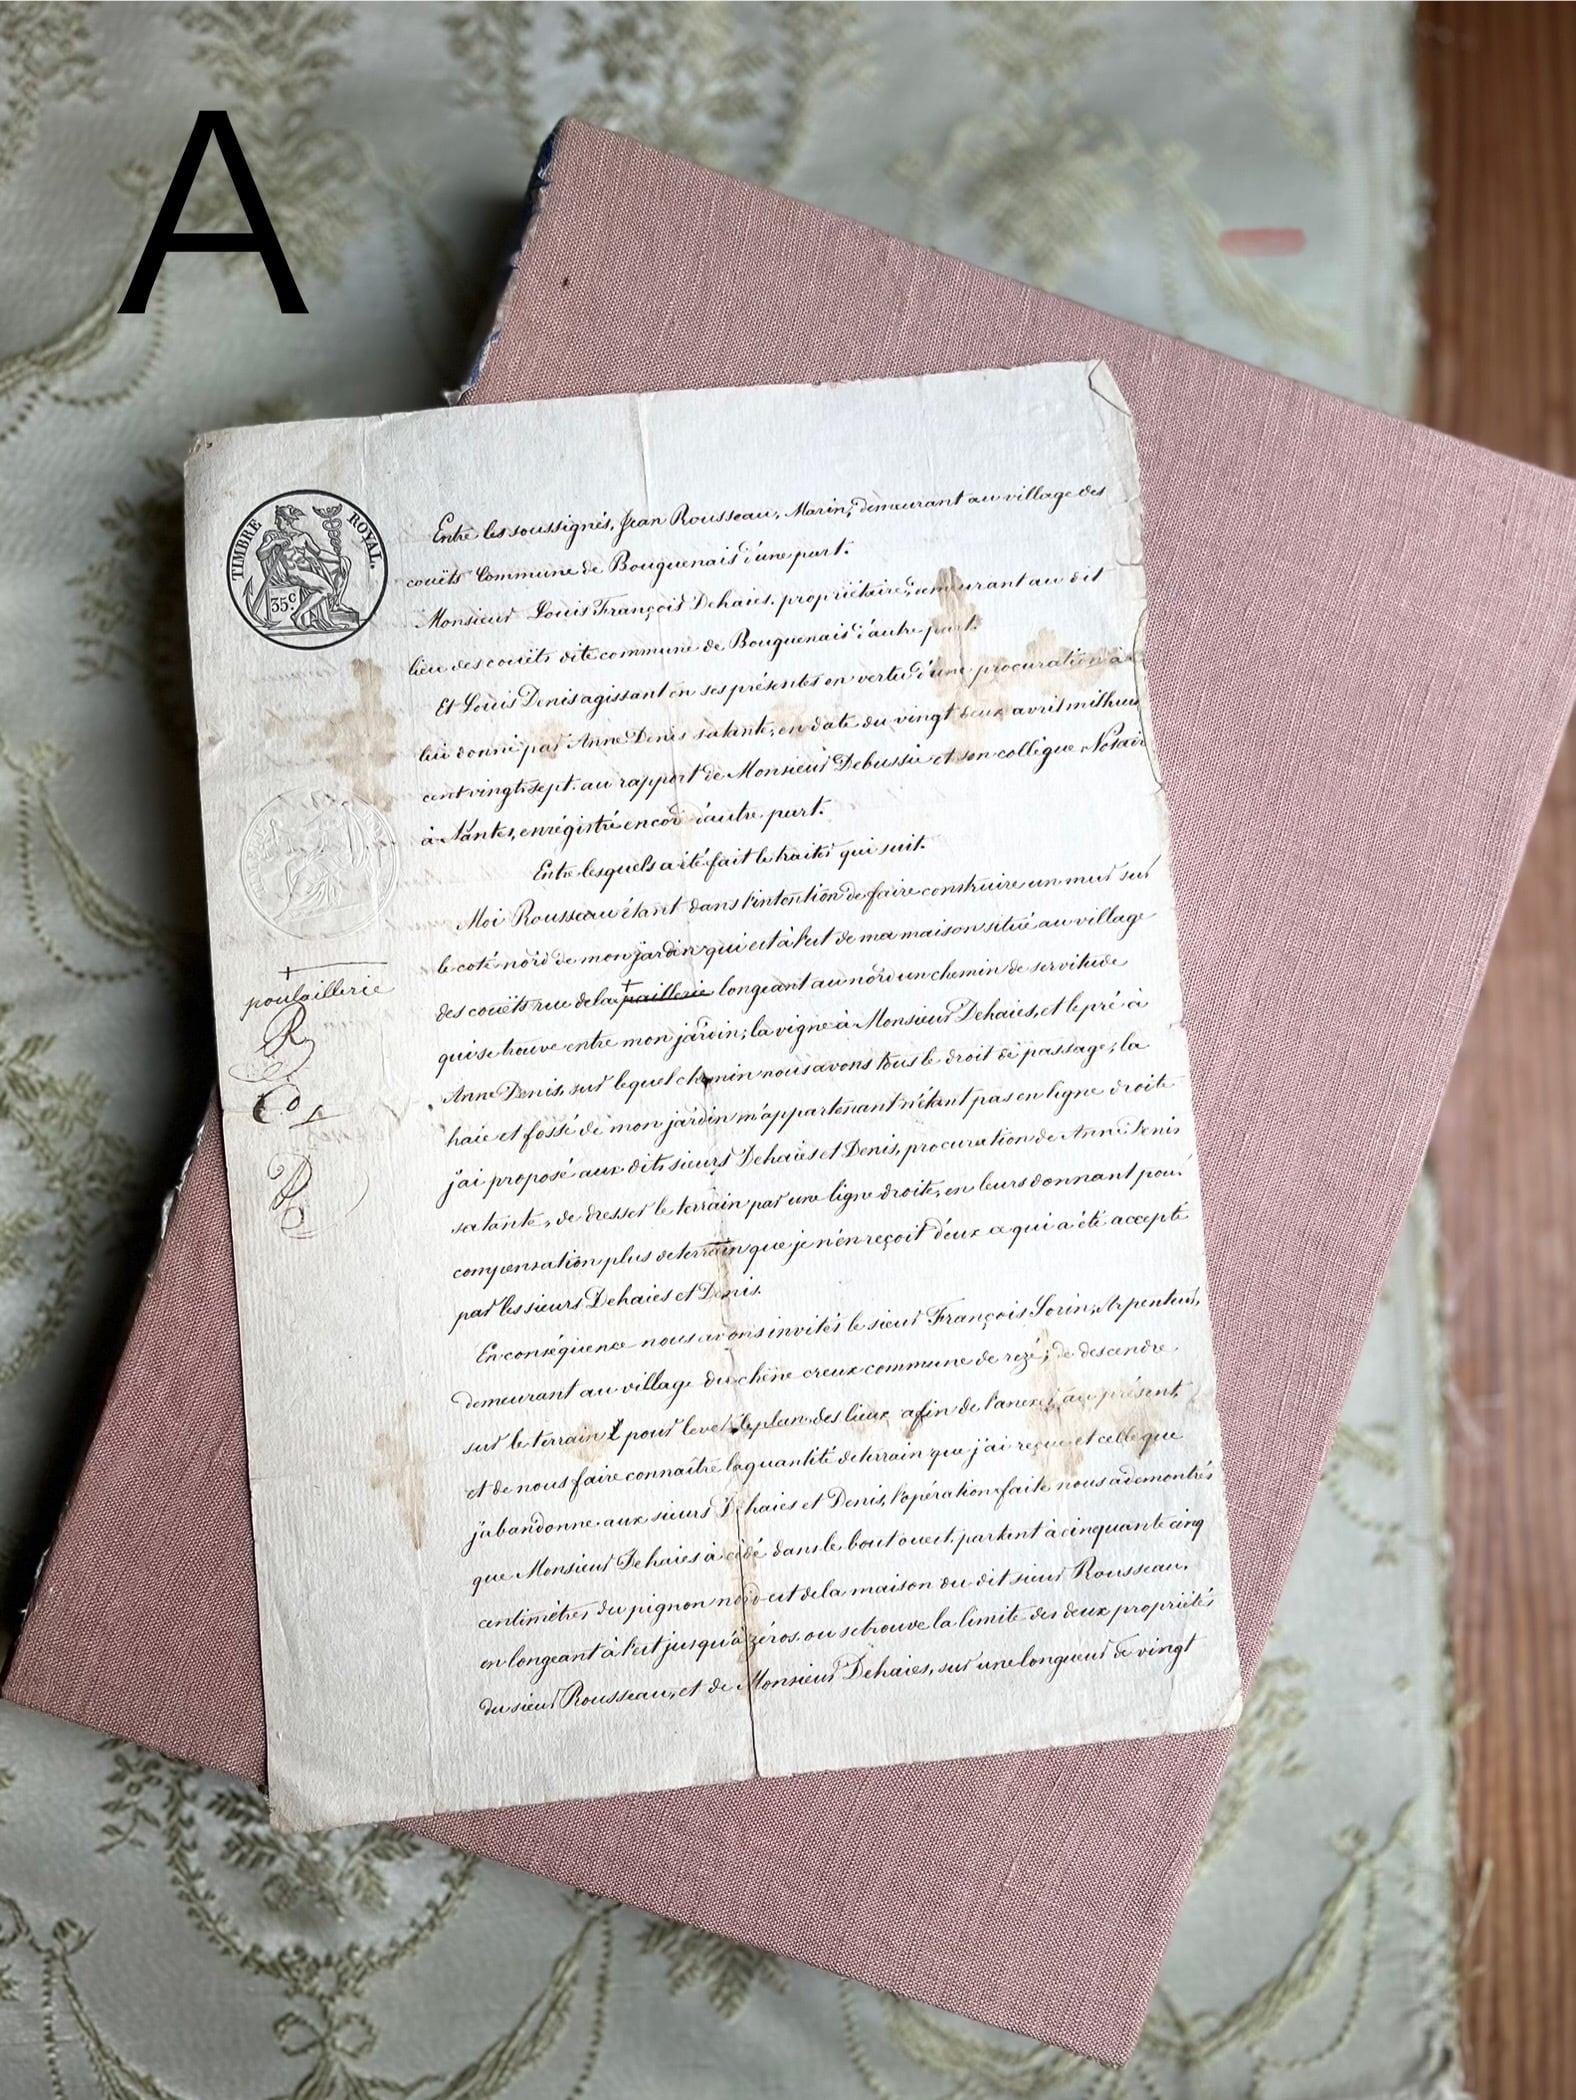 A
TIMBRE ROYAL.
35c.
Entre les soussignés, Jean Rousseau, Marin, demeurant au village des
couëts Commune de Bouguenais d'une part.
Monsieur Louis François Dehaies, propriétaire, demeurant au dit
lieu des couëts dite commune de Bouguenais d'autre part.
Et Louis Denis agissant en ses présentes en vertu d'une procuration à
lui donné par Anne Denis sa tante, en date du vingt deux avril mil huit
cent vingt sept. au rapport de Monsieur Debussie et son collègue Notair
à Nantes, enrégistré encor d'autre part.
Entre lesquels a été fait le traités qui suit.
Moi Rousseau étant dans l'intention de faire construire un mur sur
le coté nord de mon jardin qui est à l'est de ma maison situé au village
des couëts rue de la paillerie longeant au nord un chemin de servitude
qui se trouve entre mon jardin; la vigne à Monsieur Dehaies, et le pré à
Anne Denis, sur lequel chemin nous avons tous le droit de passage, la
haie et fossé de mon jardin m'appartenant n'étant pas en ligne droite
j'ai proposé aux dits sieurs Dehaies et Denis, procuration de Anne Denis
sa tante, de dresser le terrain par une ligne droite, en leurs donnant pour
compensation plus de terrain que je n'en reçoit d'eux ce qui a été accepté
par les sieurs Dehaies et Denis.
En conséquence nous avons invités le sieur François Lorin, Arpenteur,
demeurant au village du chêne creux commune de rezé, de descendre
sur le terrain pour lever le plan des lieux afin de l'anexé au présent,
et de nous faire connaître la quantité de terrain que j'ai reçue et celle que
j'abandonne aux sieurs Dehaies et Denis, l'opération faite nous a demontrés
que Monsieur Dehaies à cédé dans le bout ouest, partant à cinquante cinq
centimètres du pignon nord-est de la maison du dit sieur Rousseau,
en longeant à l'est jusqu'à zéros ou se trouve la limite des deux propriétés
du sieur Rousseau, et de Monsieur Dehaies, sur une longueur de vingt
poulaillerie
R